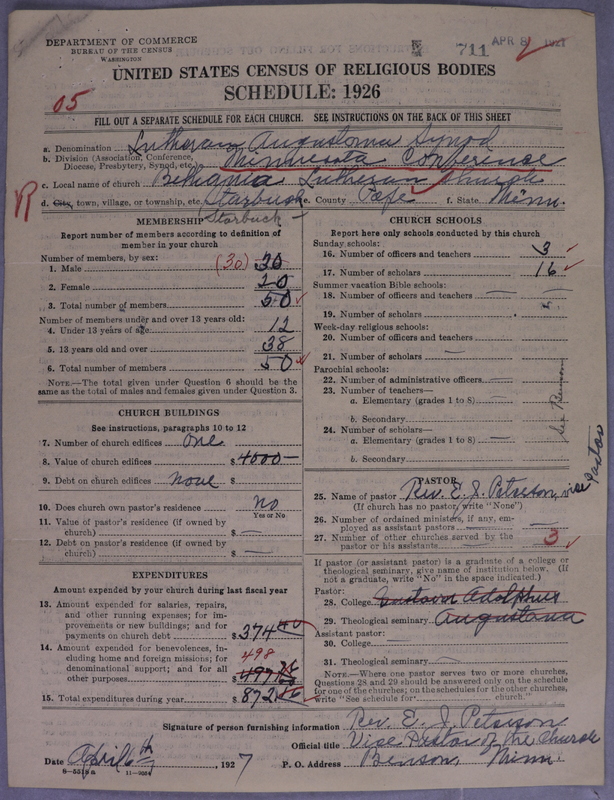 DEPARTMENT OF COMMERCE
BUREAU OF THE CENSUS
WASHINGTON
711 APR 8 1927
UNITED STATES CENSUS OF RELIGIOUS BODIES
SCHEDULE: 1926
05
FILL OUT A SEPARATE SCHEDULE FOR EACH CHURCH. SEE INSTRUCTIONS ON THE BACK OF THIS SHEET
a. Denomination Lutheran Augustana Synod
b. Division (Association, Conference, Diocese, Presbytery, Synod, etc.) Minnesota Conference
c. Local name of church Bethania Lutheran Church
R
d. City, town, village, or township, etc. Starbuck e. County Pope f. State Minn.
Starbuck
MEMBERSHIP
Report number of members according to definition of
member in your church
Number of members, by sex:
1. Male (30) 30
2. Female 20
3. Total number of members 50
Number of members under and over 13 years old:
4. Under 13 years of age 12
5. 13 years old and over 38
6. Total number of members 50
NOTE.—The total given under Question 6 should be the
same as the total of males and females given under Question 3.
CHURCH BUILDINGS
See instructions, paragraphs 10 to 12
7. Number of church edifices one
8. Value of church edifices $4000—
9. Debt on church edifices none $
10. Does church own pastor's residence no
Yes or No
11. Value of pastor's residence (if owned by
church) $ —
12. Debt on pastor's residence (if owned by
church) $ —
EXPENDITURES
Amount expended by your church during last fiscal year
13. Amount expended for salaries, repairs,
and other running expenses; for im-
provements or new buildings; and for
payments on church debt $374
14. Amount expended for benevolences, in-
cluding home and foreign missions; for
denominational support; and for all
other purposes $497
498
15. Total expenditures during year $872
CHURCH SCHOOLS
Report here only schools conducted by this church
Sunday schools:
16. Number of officers and teachers 3
17. Number of scholars 16
Summer vacation Bible schools:
18. Number of officers and teachers —
19. Number of scholars
Week-day religious schools:
20. Number of officers and teachers
21. Number of scholars —
Parochial schools:
22. Number of administrative officers —
23. Number of teachers—
a. Elementary (grades 1 to 8) —
b. Secondary
24. Number of scholars—
a. Elementary (grades 1 to 8) —
b. Secondary
See Benson
PASTOR
25. Name of pastor Rev. E. J. Peterson, vice Pastor
(If church has no pastor, write "None")
26. Number of ordained ministers, if any, em-
ployed as assistant pastors —
27. Number of other churches served by the
pastor or his assistants 3
If pastor (or assistant pastor) is a graduate of a college or
theological seminary, give name of institution below. (If
not a graduate, write "No" in the space indicated.)
Pastor:
28. College Gustavus Adolphus
29. Theological seminary Augustana
Assistant pastor:
30. College —
31. Theological seminary —
NOTE.—Where one pastor serves two or more churches,
Questions 28 and 29 should be answered only on the schedule
for one of the churches; on the schedules for the other churches,
write "See schedule for church."
Signature of person furnishing information Rev. E. J. Peterson
Official title Vice Pastor of the Church
Date April 6th, 1927 P. O. Address Benson, Minn.